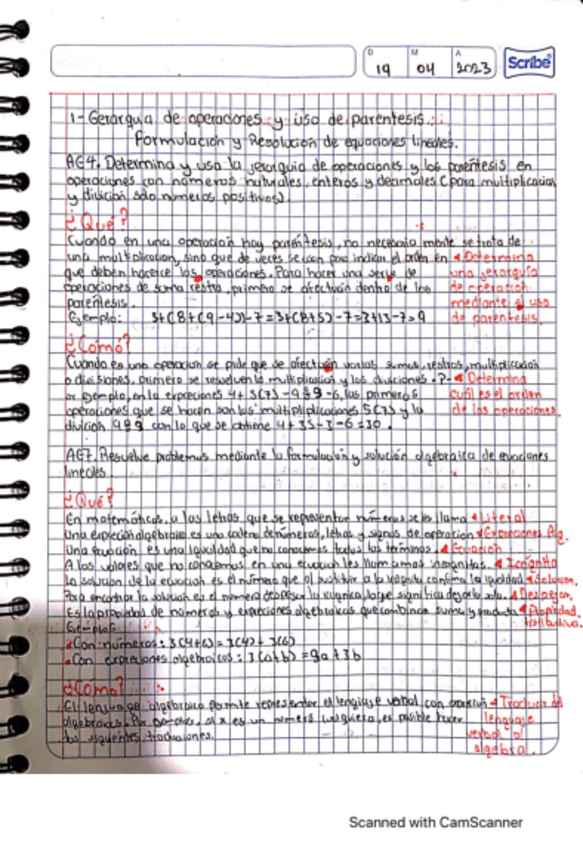 D M A
19 04 2023 Scribe
1- Gerarquia de operaciones y uso de parentesis.
Formulación y Resolución de equaciones lineales.
AE4. Determina y usa la jerarquia de operaciones y los paréntesis en
operaciones con números naturales, enteros y decimales (para multiplicacion
y division solo numeros positivos).
¿Qué?
Cuando en una operacion hay paréntesis, no necesaria mente se trata de
una multiplicacion, sino que de veces se usan para indicar el orden en Determina
que deben hacerce las operaciones. Para hacer una serie de una jerarquía
operaciones de suma resta, primero se efectuan dentro de los de operación
parentesis. mediante el uso
Ejemplo: 3+(8+(9-4))-7=3+(8+5)-7=3+13-7=9 de parentesis.
¿Cómo?
Cuando es una operacion se pide que se efectuen varias sumas, restas, multiplicacion
o divisiones, primero se resuelven la multiplicacion y las divisiones. Determina
or ejemplo, en la expreciones 4+5(7)-9 -6, las primeras cuál es el orden
operaciones que se hacen son las multipliplicaciones 5(7) y la de las operaciones.
division con lo que se obtiene 4+35-3-6=30.
AE7. Resuelve problemas mediante la formulación y solución algebraica de equaciones
lineales.
¿Qué?
En matemáticas, a las letras que se representan números se les llama Literal
Una expreción algebraica es una cadena de números, letras y signos de operación Expreciones Alg.
Una ecuación es una igualdad que no conocemos todos los terminos. Ecuación
A los valores que no conocemos en una ecuación les llamamos incognitas. Incognita
La solución de la ecuación es el número que al sustituir a la incognita confirma la igualdad Solucion.
Para encontrar la solución es el numero despejar la incognita, lo que significa dejarla sola. Despejar.
Es la propiedad de números y expreciones algebraicas que combinan suma y producto Propiedad
Ejemplos:
Con números: 3(4+6)=3(4)+3(6)
Con expreciones algebraicas: 3(a+b)=9a+3b
¿Cómo?
El lenguaje algebraico permite representar el lenguaje verbal con Traducir del
algebraicas. Por ejemplo, si x es un número cualquiera, es posible hacer lenguaje
las siguientes traduciones. verbal al
algebra.
Scanned with CamScanner